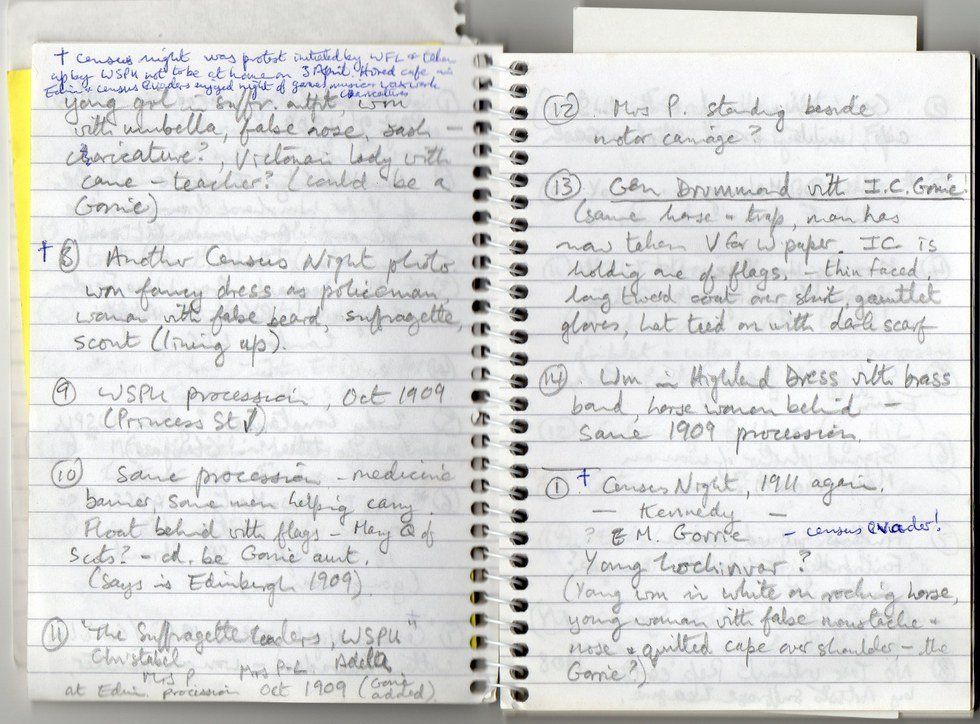 † Census night was protest initiated by WFL & taken
up by WSPU not to be at home on 3 April. Hired cafe in
Edin & census evaders enjoyed night of games music & waxwork
caricatures
young girl in suffr. outfit, wom
with umbella, false nose, sash –
caricature?, Victorian lady with
cane – teacher? (could be a
Gorrie)
† ⑧ Another Census Night photo
wom fancy dress as policeman,
woman with false beard, suffragette,
scout (lining up).
⑨ WSPU procession, Oct 1909
(Princess St)
⑩ Same procession – medicine
banner, some men helping carry.
Float behind with flags – Mary Q of
Scots? – cd. be Gorrie aunt.
(Says is Edinburgh 1909)
⑪ "The Suffragette Leaders, WSPU"
Christabel
Mrs P Mrs P-L Adella
at Edin. procession Oct 1909 (Gorrie
added)
⑫ Mrs P. standing beside
motor carriage?
⑬ Gen Drummond with I.C. Gorrie!
(same horse & trap, man has
now taken V for W paper. IC is
holding one of flags, – thin faced,
long tweed coat over skirt, gauntlet
gloves, hat tied on with dark scarf
⑭ Wm in Highland Dress with brass
band, horse woman behind –
same 1909 procession.
① † Census Night, 1911 again.
— Kennedy —
? E M. Gorrie – census evader!
Young Lochinvar?
(Young wm in white on rocking horse,
young woman with false moustache &
nose & quilted cape over shoulder – the
Gorrie?)